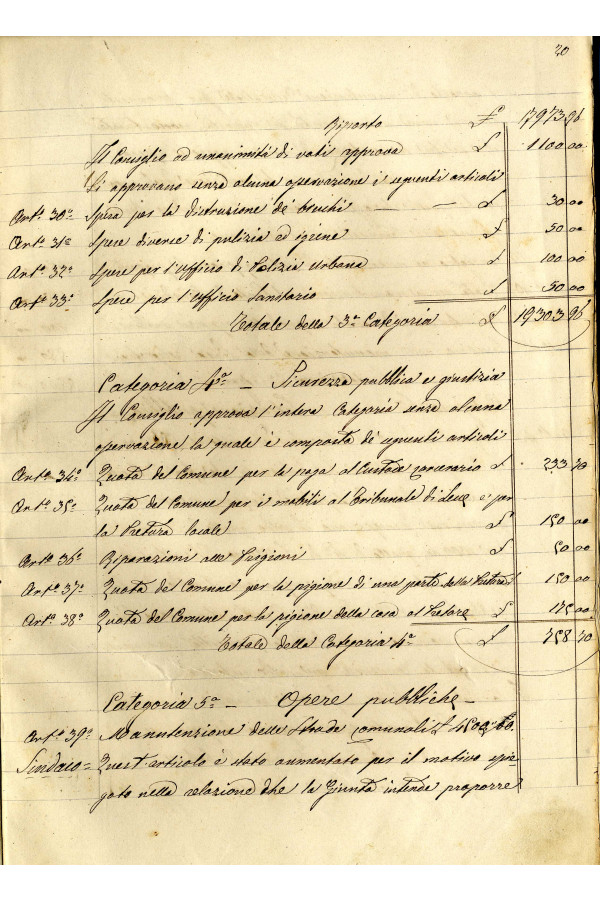 20
Riporto £ 17973.96
Il Consiglio ad unanimità di voti approva £ 1100.00
Si approvano senza alcuna osservazione i seguenti articoli
Art.º 30º Spesa per la distruzione de' bruchi — — £ 30.00
Art.º 31º Spese diverse di pulizia ed igiene £ 50.00
Art.º 32º Spese per l'Ufficio di Polizia Urbana £ 100.00
Art.º 33º Spese per l'Ufficio Sanitario £ 50.00
Totale della 3ª Categoria £ 19303.96
Categoria 4ª — Sicurezza pubblica e giustizia
Il Consiglio approva l'intera Categoria senza alcuna
osservazione la quale è composta de' seguenti articoli
Art.º 34º Quota del Comune per la paga al Custode carcerario £ 233.70
Art.º 35º Quota del Comune per i mobili al Tribunale di Lecce e per
la Pretura locale £ 150.00
Art.º 36º Riparazioni alle Prigioni £ 50.00
Art.º 37º Quota del Comune per la pigione di una parte della Pretura 150.00
Art.º 38º Quota del Comune per la pigione della casa al Pretore £ 175.00
Totale della Categoria 4ª £ 758.70
Categoria 5ª — Opere pubbliche —
Art.º 39º Manutenzione delle Strade comunali £ 4500.00.
Sindaco = Quest'articolo è stato aumentato per il motivo spie
gato nella relazione che la Giunta intende proporre